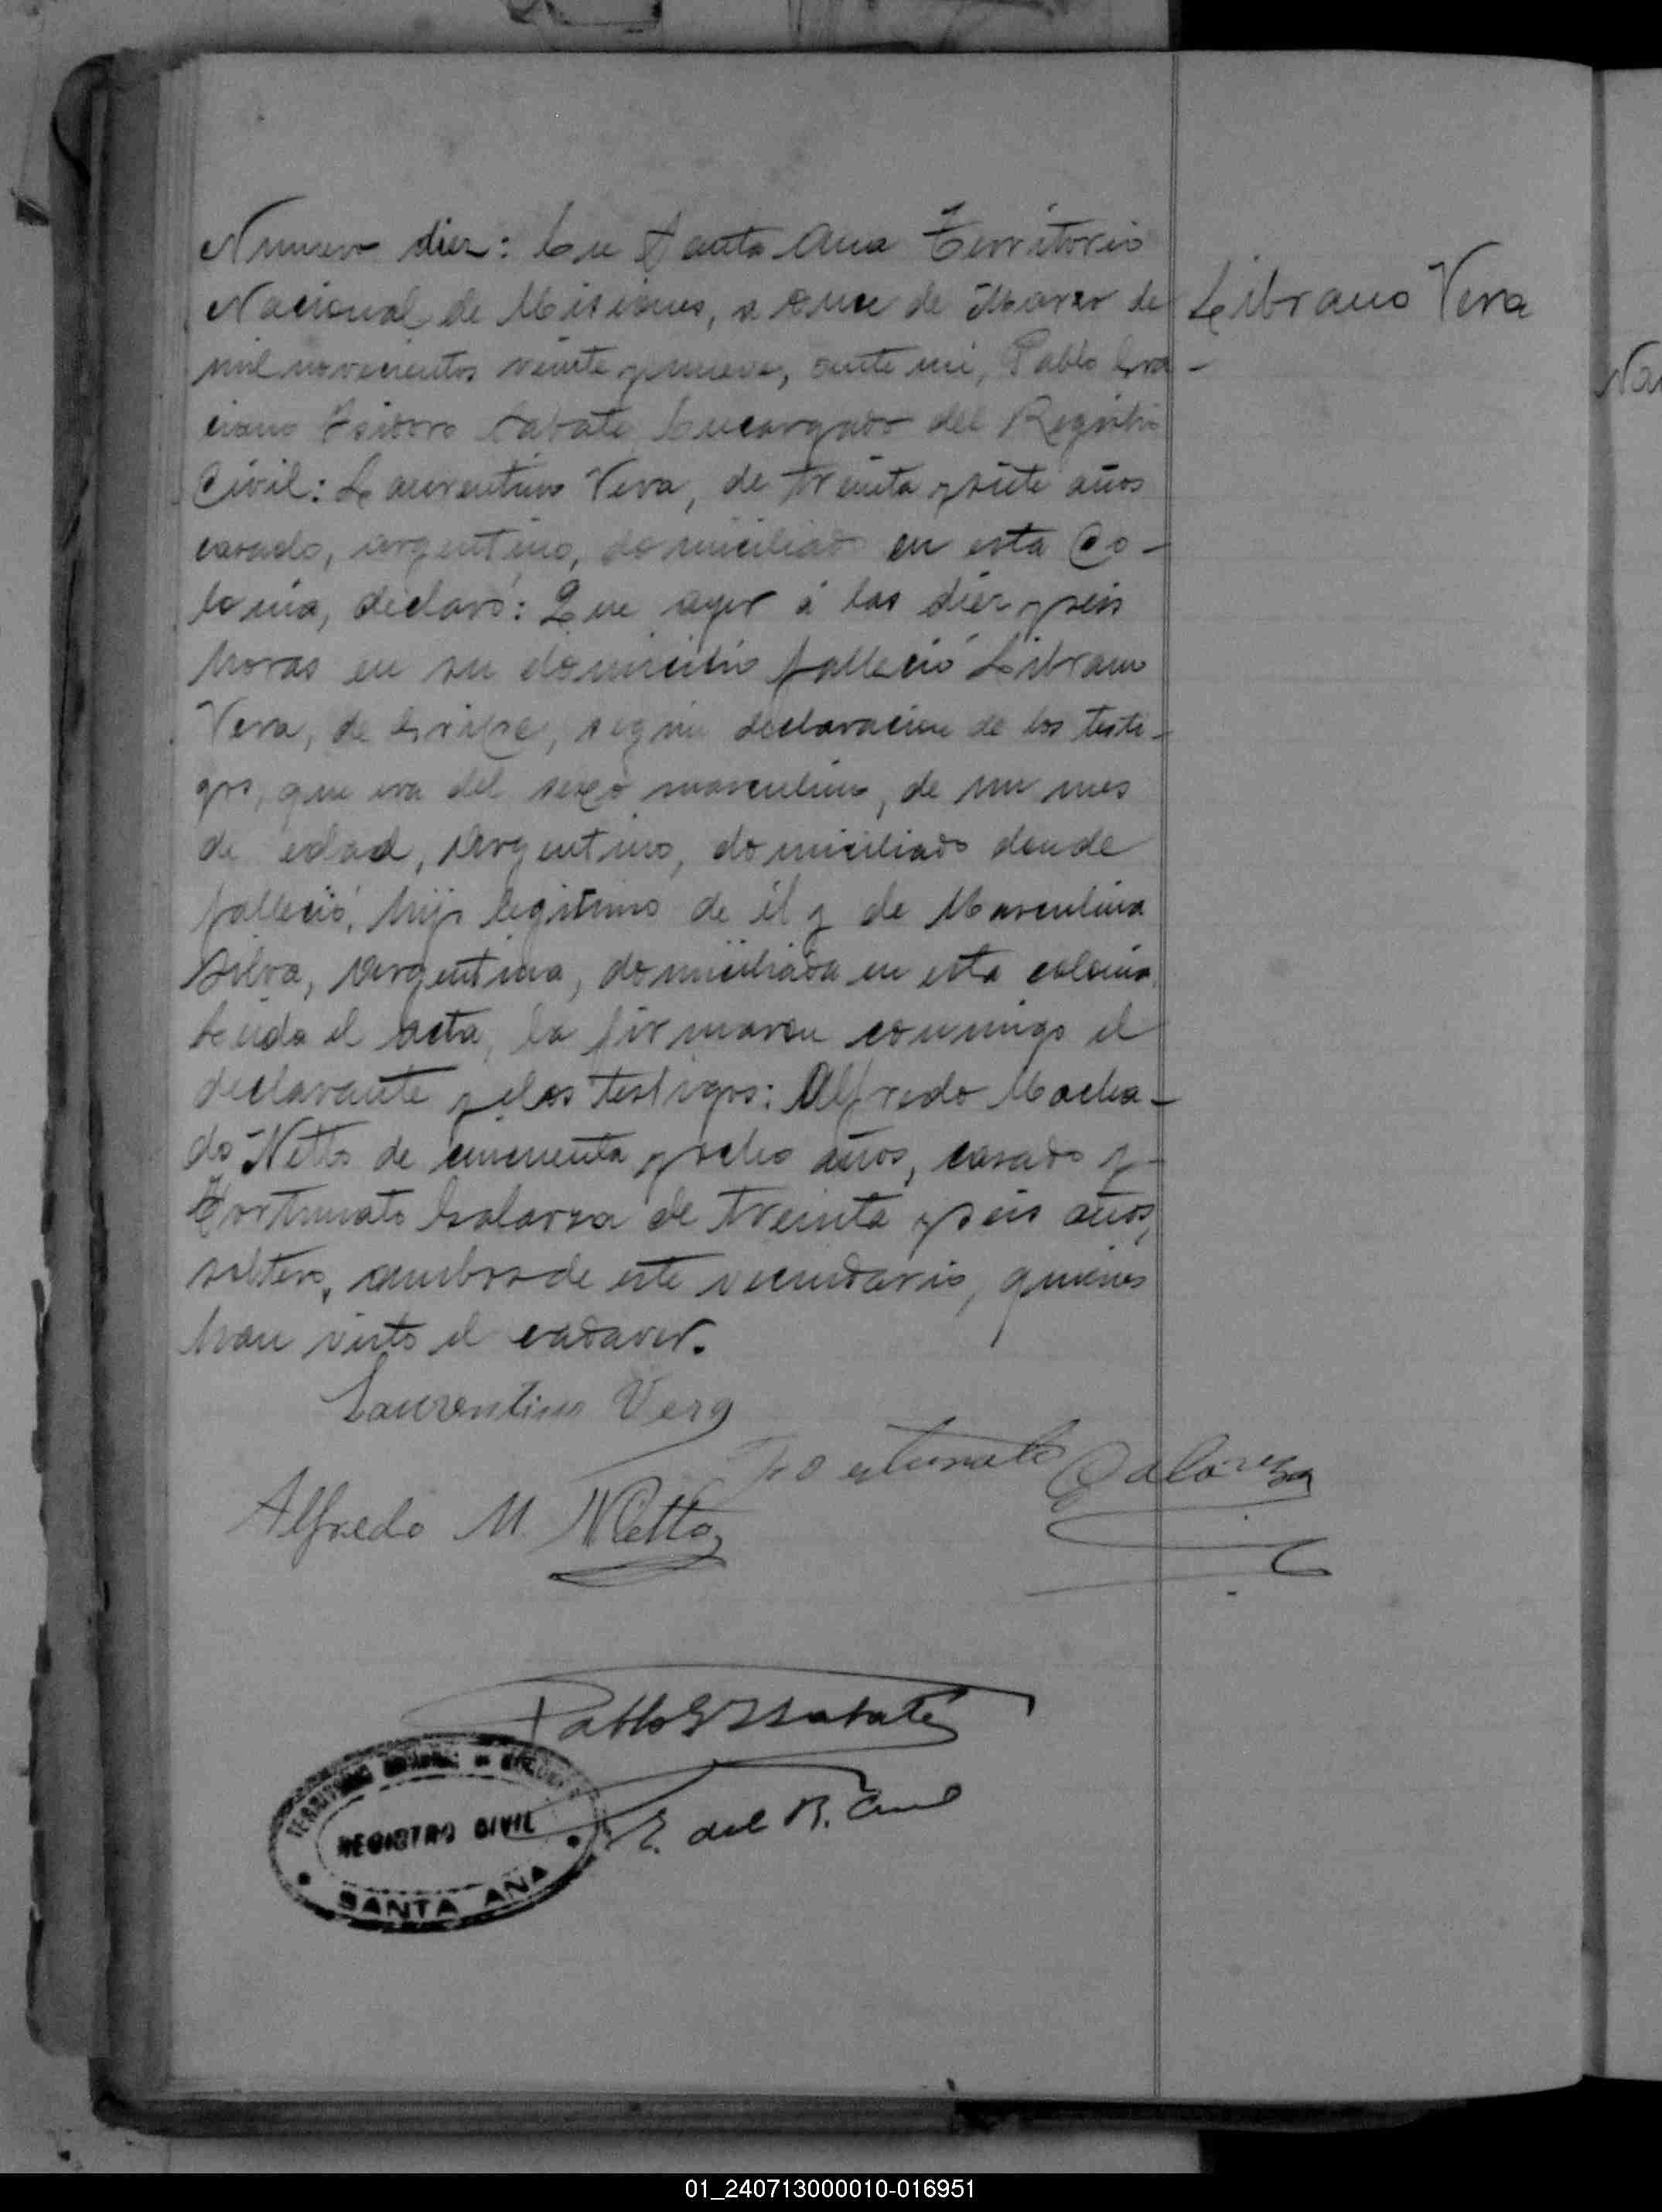 Numero diez: En Santa Ana Territorio
Nacional de Misiones, a once de Marzo de
mil novecientos veinte y nueve, ante mi, Pablo Gra-
ciano Isidoro Sabate, Encargado del Registro
Civil: Laurentino Vera, de treinta y siete años
casado, argentino, domiciliado en esta Co-
lonia, declaró: Que ayer á las diez y seis
horas en su domicilio falleció Librano
Vera, de Gripe, según declaracion de los testi-
gos, que era del sexo masculino, de un mes
de edad, Argentino, domiciliado donde
falleció, hijo legitimo de él y de Masculina
Silva, Argentina, domiciliada en esta colonia.
Leida el acta, la firmaron conmigo el
declarante y los testigos: Alfredo Macha-
do Netto de cincuenta y ocho años, casado y
Fortunato Galarza de treinta y seis años,
soltero, ambos de este vecindario, quienes
han visto el cadaver.
Librano Vera
Laurentino Vera
Fortunato Galarza
Alfredo M. Netto
Pablo G I Sabaté
E. del R. Civil
TERRITORIO NACIONAL DE MISIONES
REGISTRO CIVIL
SANTA ANA
01_240713000010-016951